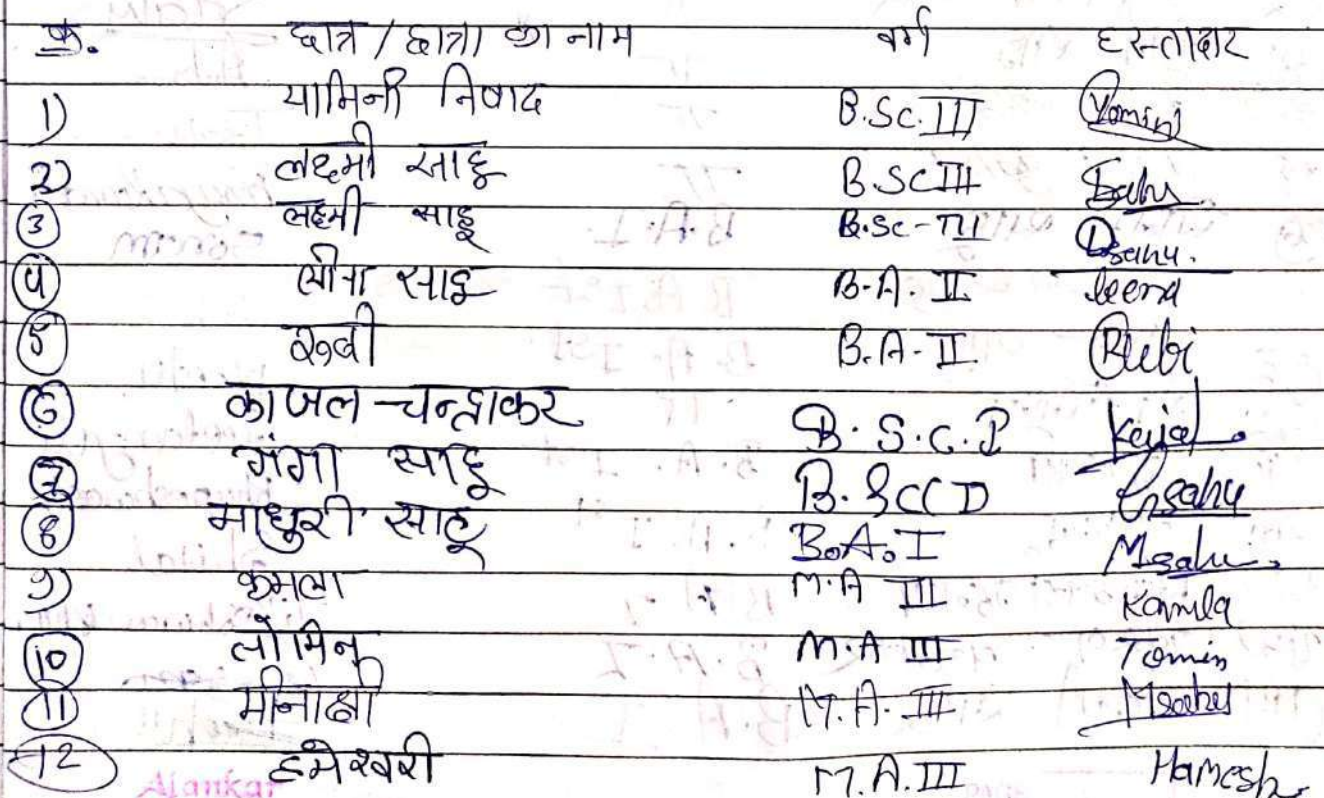 क्र. छात्र / छात्रा का नाम वर्ग हस्ताक्षर
1) यामिनी निषाद B.Sc. III Yamini
2) लक्ष्मी साहू B.SC III Sahu
3 लक्ष्मी साहू B.Sc-III Lsahu.
4 लीना साहू B.A. II leena
5 रूबी B.A-II Rubi
6 काजल चन्द्राकर B.S.C.I Kajal
7 गंगा साहू B.SC Gsahu
8 माधुरी साहू B.A.I Msahu
9) कमला M.A III Kamla
10 तोमिन M.A III Tomin
11 मीनाक्षी M.A. III Msahu
12 हमेश्वरी M.A. III Hamesh
Alankar